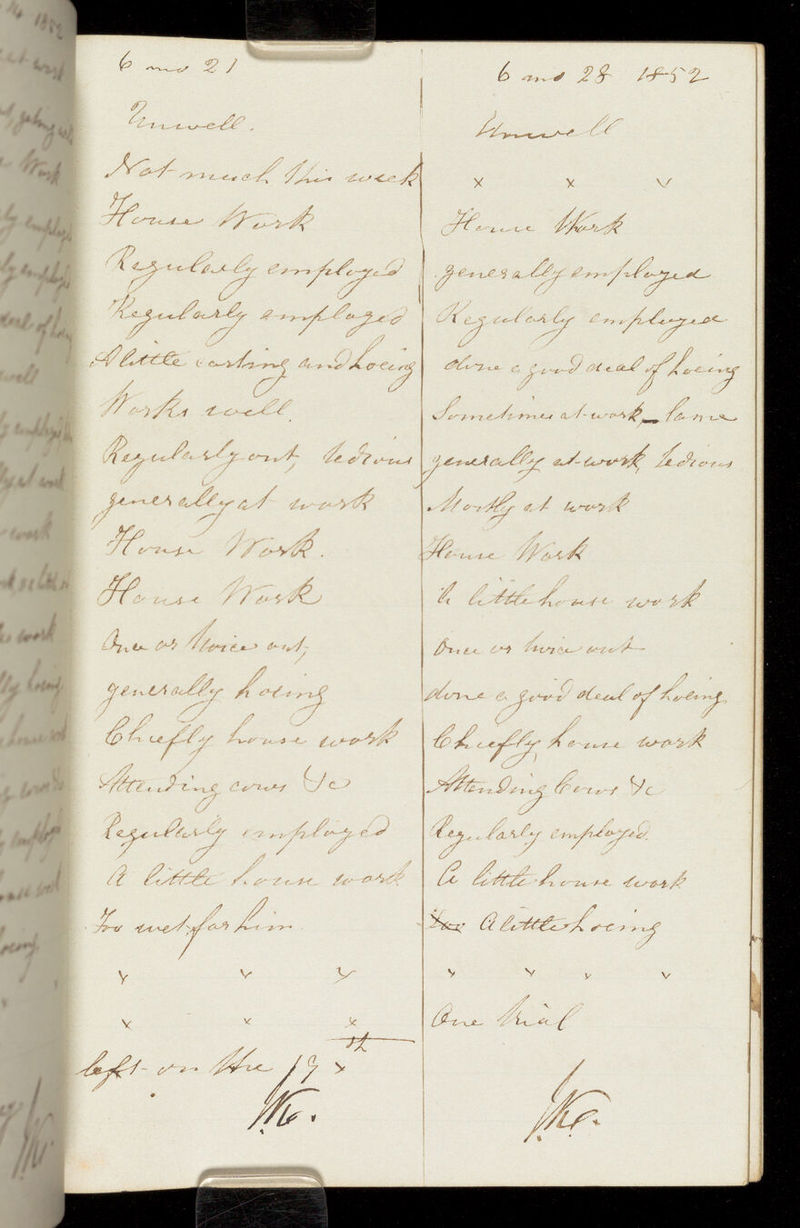 6 mo 21
Unwell.
Not much this week
House Work
Regularly employed
Regularly employed
A little carting and hoeing
Works well.
Regularly out, tedious
generally at work
House Work.
House Work
Once or twice out,
generally hoeing
Chiefly house work
Attending cows &c
Regularly employed
A little house work
Too wet for him
" " "
" " "
left on the 19th
6 mo 28 1852
Unwell
" " "
House Work
generally employed
Regularly employed
done a good deal of hoeing
Sometimes at work, – lame
generally at work, tedious
Mostly at work
House Work
A little house work
Once or twice out
done a good deal of hoeing
Chiefly house work
Attending Cows &c
Regularly employed.
A little house work
A little hoeing
" " " "
One trial